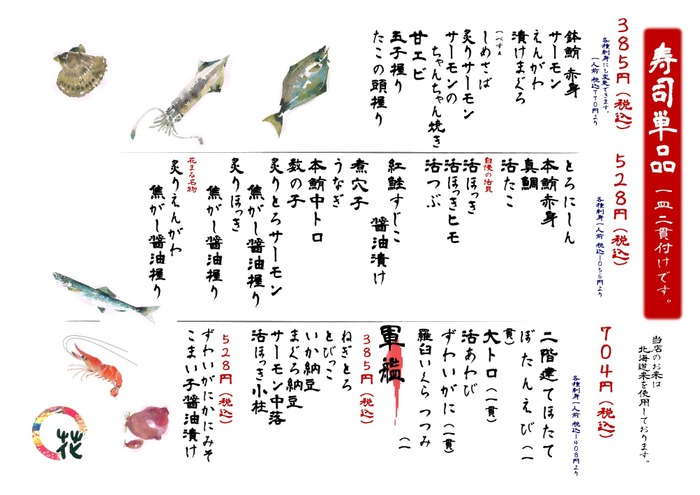 寿司単品 一皿二貫付けです。
当店のお米は
北海道米を使用しております。
385円(税込)
各種刺身にも変更できます。
一人前 税込770円より
鉢鮪 赤身
サーモン
えんがわ
漬けまぐろ
しめさば
炙りサーモン
サーモンの
ちゃんちゃん焼き
甘エビ
玉子握り
たこの頭握り
528円(税込)
各種刺身一人前 税込1056円より
とろにしん
本鮪赤身
真鯛
活たこ
自慢の活貝
活ほっき
活ほっきヒモ
活つぶ
紅鮭すじこ
醤油漬け
煮穴子
うなぎ
本鮪中トロ
数の子
炙りとろサーモン
焦がし醤油握り
炙りほっき
焦がし醤油握り
花まる名物
炙りえんがわ
焦がし醤油握り
704円(税込)
各種刺身一人前 税込1408円より
二階建てほたて
ぼたんえび(一貫)
大トロ(一貫)
活あわび
ずわいがに(一貫)
羅臼いくらつつみ(一
軍艦
385円(税込)
ねぎとろ
とびっこ
いか納豆
まぐろ納豆
サーモン中落
活ほっき小柱
528円(税込)
ずわいがにかにみそ
こまい子醤油漬け
花